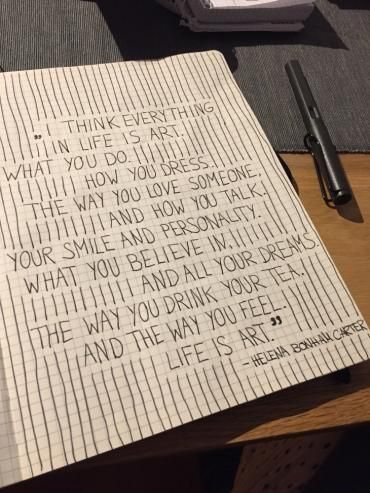 „I THINK EVERYTHING
IN LIFE IS ART.
WHAT YOU DO.
HOW YOU DRESS.
THE WAY YOU LOVE SOMEONE,
AND HOW YOU TALK.
YOUR SMILE AND PERSONALTY.
WHAT YOU BELIEVE IN,
AND ALL YOUR DREAMS.
THE WAY YOU DRINK YOUR TEA.
AND THE WAY YOU FEEL.
LIFE IS ART.”
- HELENA BONHAM CARTER